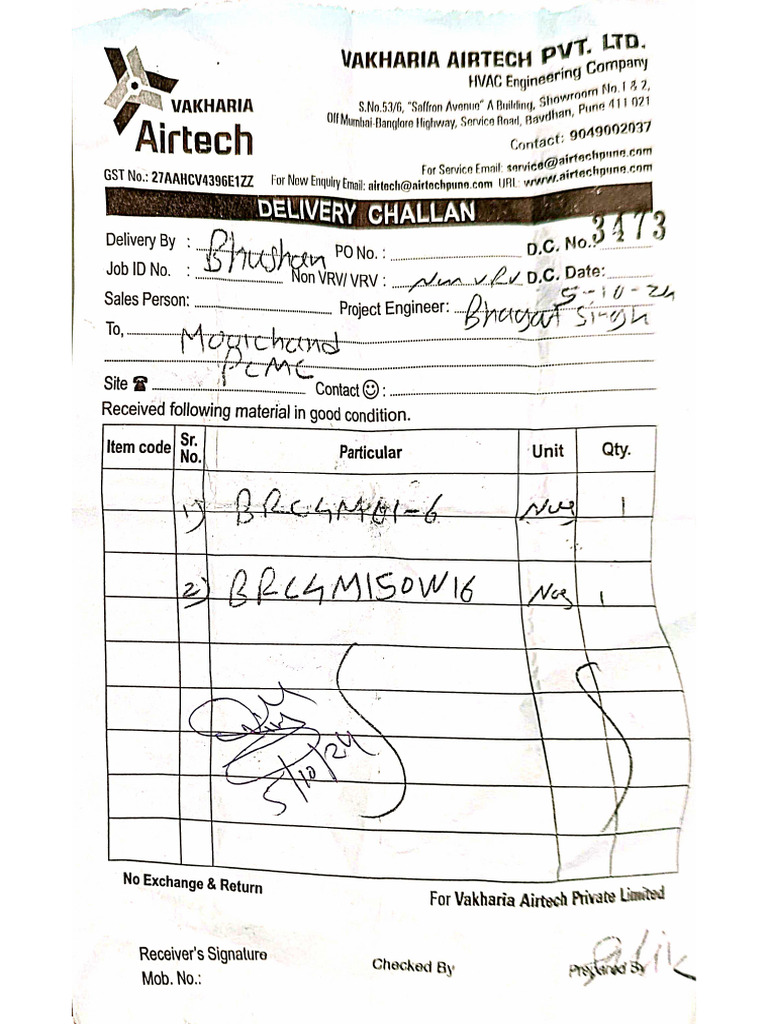 VAKHARIA AIRTECH PVT. LTD.
HVAC Engineering Company
S.No.53/6, "Saffron Avenue" A Building, Showroom No. 1 & 2,
Off Mumbai-Banglore Highway, Service Road, Bavdhan, Pune 411 021
Contact: 9049002037
VAKHARIA
Airtech
For Service Email: service@airtechpune.com
GST No.: 27AAHCV4396E1ZZ For New Enquiry Email: airtech@airtechpune.com URL: www.airtechpune.com
DELIVERY CHALLAN
Delivery By : Bhushan PO No. : D.C. No.: 3473
Job ID No. : Non VRV/ VRV : Non VRV D.C. Date: 5-10-24
Sales Person: Project Engineer: Bhagat Singh
To, Mogichand
PCMC
Site Contact :
Received following material in good condition.
Item code Sr. No. Particular Unit Qty.
1) Nos 1
2) BRC4M150W16 Nos 1
5/10/24
No Exchange & Return
For Vakharia Airtech Private Limited
Receiver's Signature Checked By Prepared By
Mob. No.: